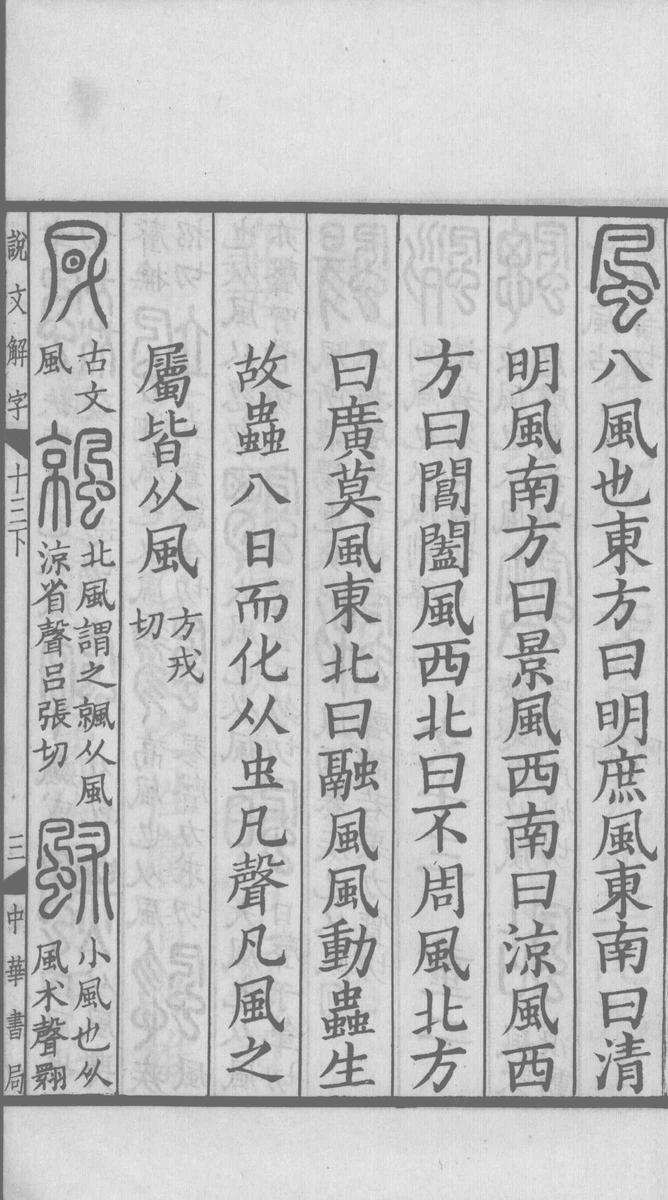 風八風也東方曰明庶風東南曰清
明風南方曰景風西南曰涼風西
方曰閶闔風西北曰不周風北方
曰廣莫風東北曰融風風動蟲生
故蟲八日而化从虫凡聲凡風之
屬皆从風方戎
切
古文
風
北風謂之飆从風
涼省聲呂張切
小風也从
風术聲翾
說文解字
十三下
三
中華書局